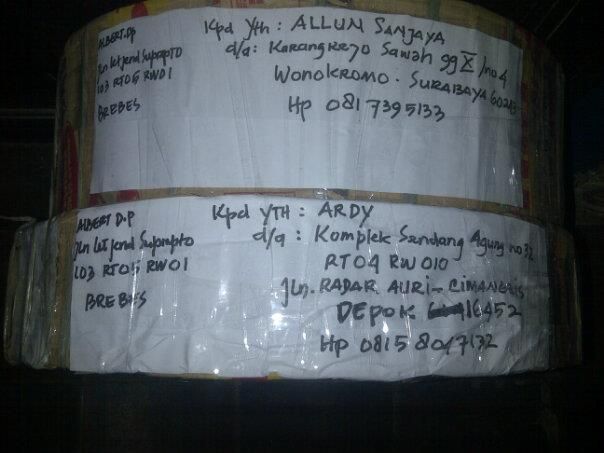 ALBERT.DP
Jln Letjend Suprapto
103 RT05 RW01
BREBES
Kpd Yth : ALLUN SANJAYA
d/a : Karangrejo Sawah gg X /no 4
WONOKROMO . SURABAYA 60243
Hp 0817395133
ALBERT D.P
Jln Letjend Suprapto
103 RT05 RW01
BREBES
Kpd YTH : ARDY
d/a : Komplek Sendang Agung no 32
RT04 RW 010
Jln. RADAR AURI - CIMANGGIS
DEPOK 16452
Hp 0815 8047132